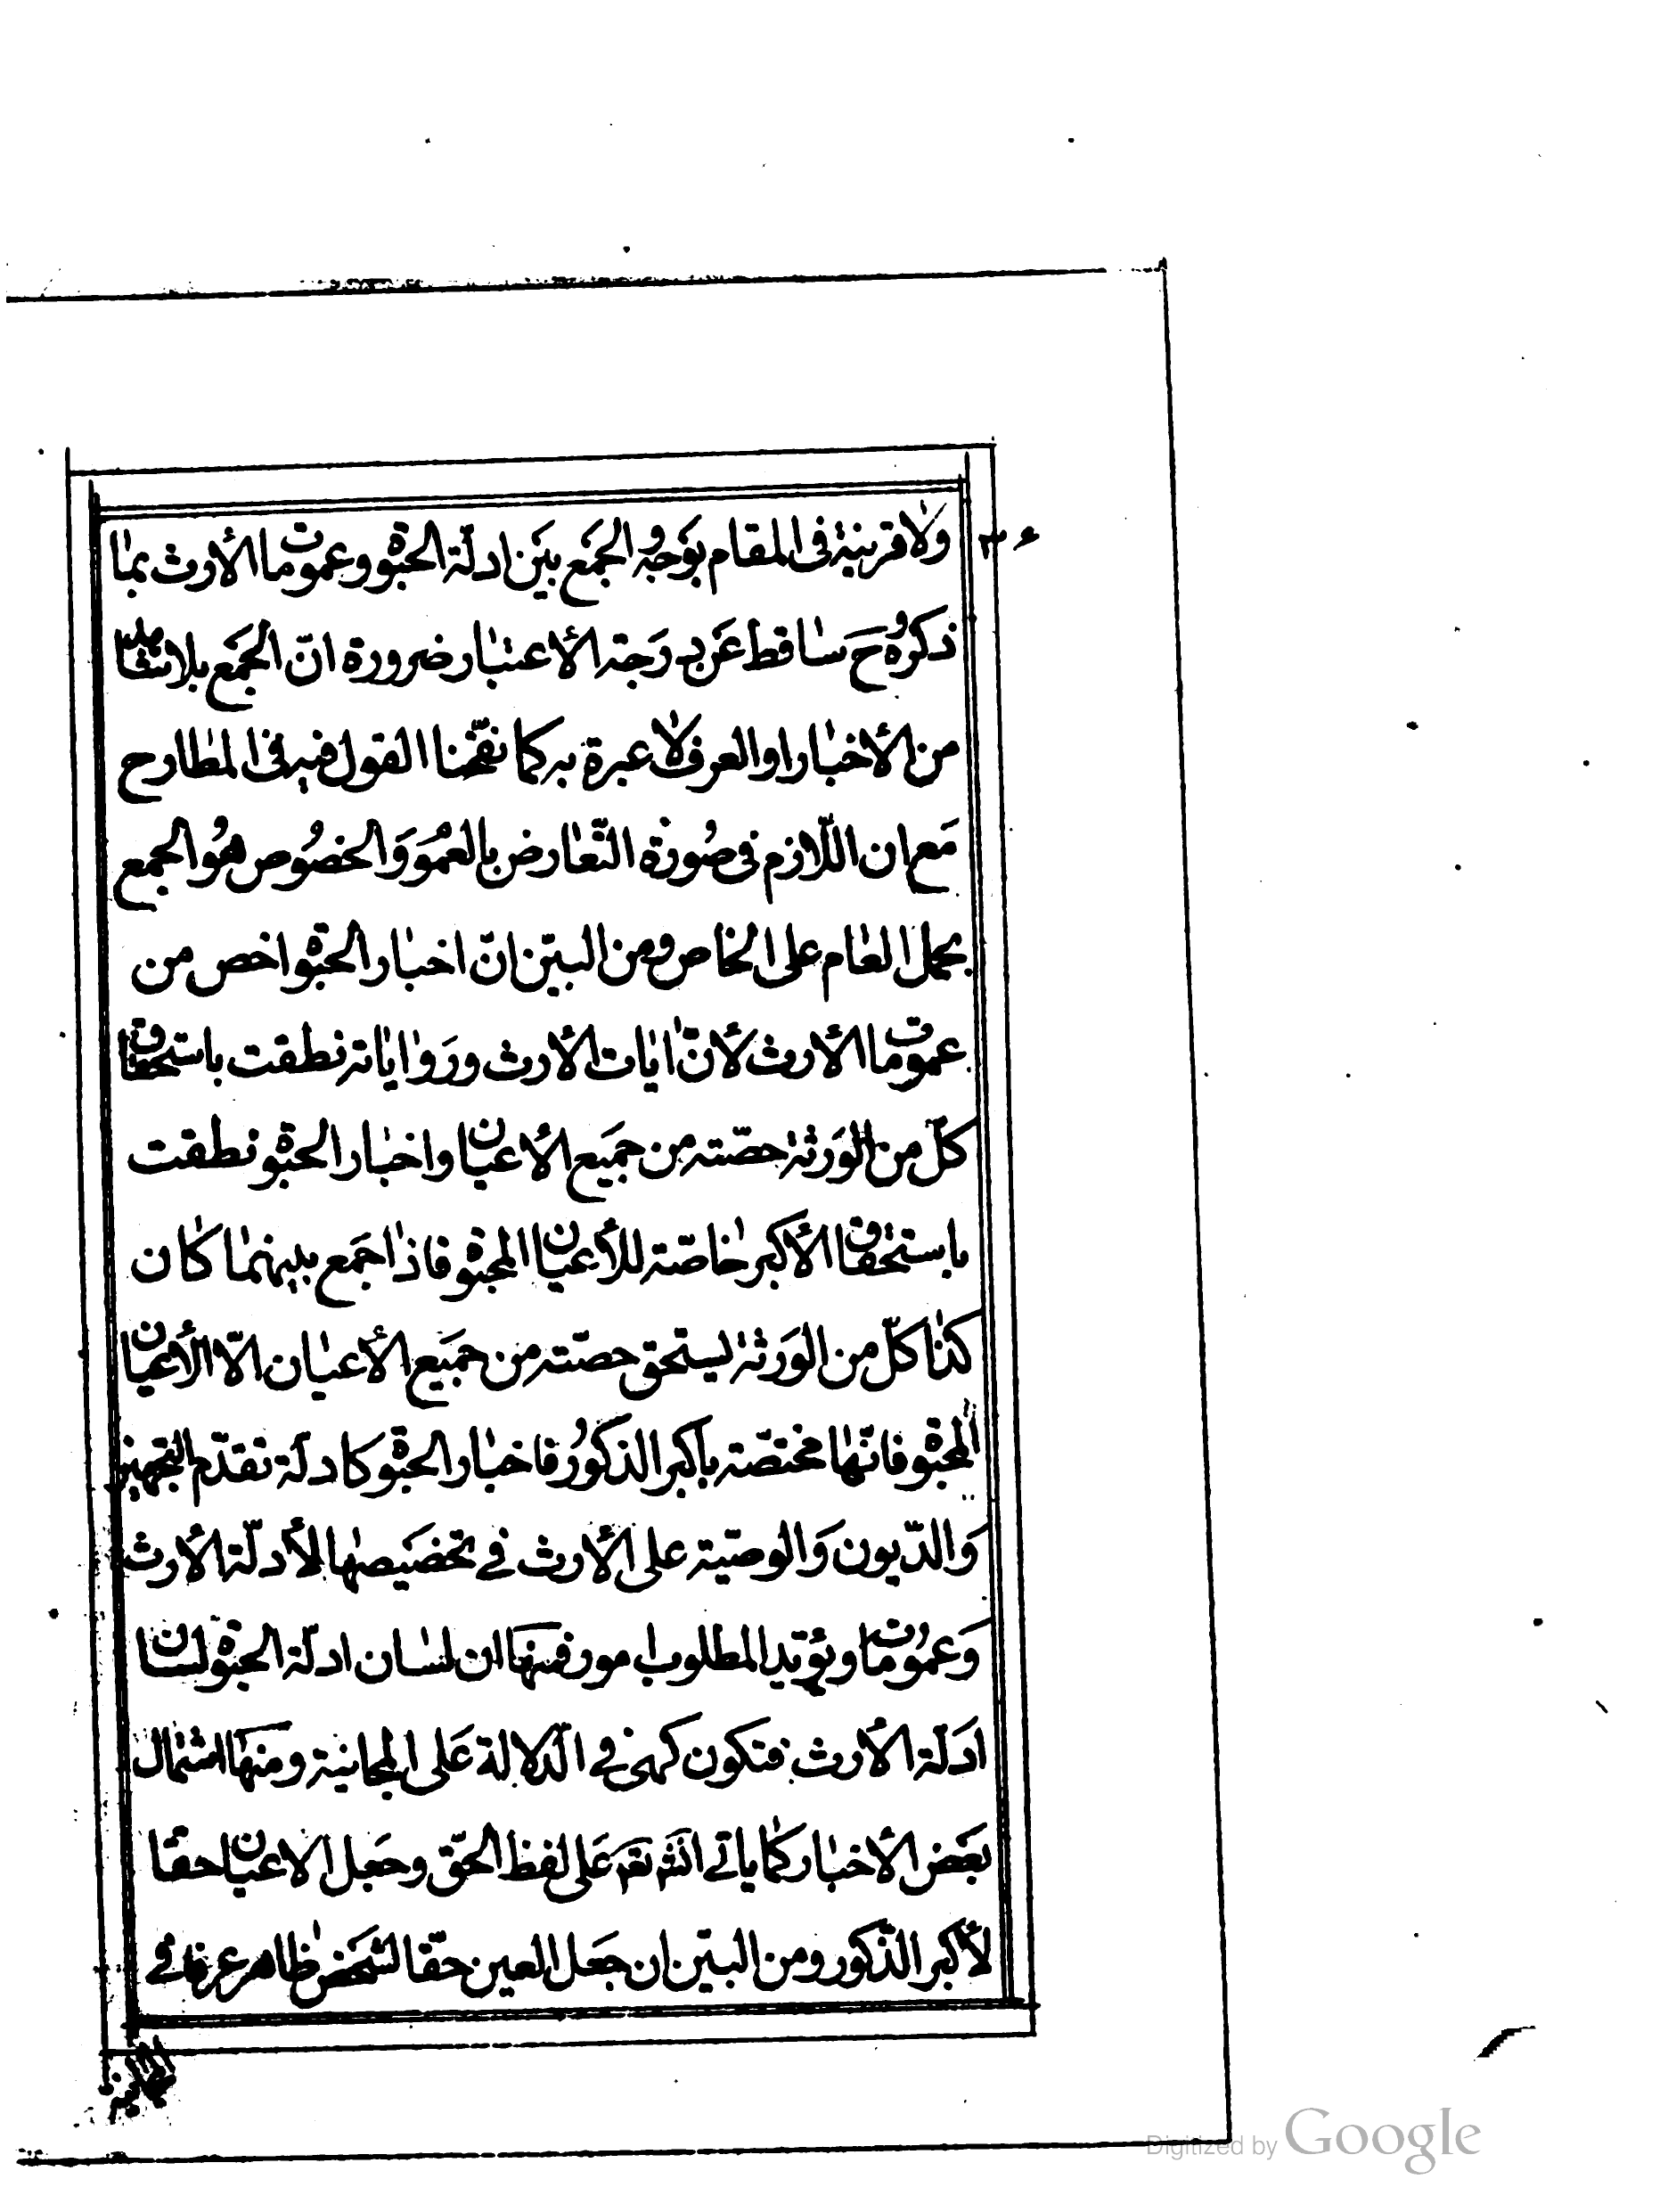 ولا قرینة فى المقام بوجه و الجمع بین ادلّة الحبوة و عمومات الأرث بما
ذکروه ح ساقط عن درجة الأعتبار ضرورة انّ الجمع بلا شاهد
من الأخبار او العرف لا عبرة به کما نقّحنا القول فیه فى المطارح
مع ان اللّازم فى صورة التّعارض بالعموم و الخصوص هو الجمع
بحمل العام على الخاص و من البیّن انّ اخبار الحبوة اخص من
عمومات الأرث لأنّ ایات الأرث و روایاته نطقت باستحقاق
کلّ من الورثة حصّته من جمیع الأعیان و اخبار الحبوة نطقت
باستحقاق الأکبر خاصّة للأعیان المحبوة فاذا جمع بینهما کان
کذا کلّ من الورثة یستحق حصّته من جمیع الأعیان الّا الأعیان
المحبوة فانّها مختصّة باکبر الذکور فاخبار الحبوة کادلة تقدّم التجهیز
و الدّیون و الوصیّة على الأرث فی تخصیصها لأدلّة الأرث
و عموماته و یؤیّد المطلوب امور فمنها ان لسان ادلّة الحبوة لسان
ادلّة الأرث فتکون کهى فی الدّلالة على المجانیة و منها اشتمال
بعض الأخبار کما یاتی انشَ تعَ على لفظ الحقّ و جعل الاعیان حقّا
لأکبر الذّکور و من البیّن ان جعل العین حقّا لشخص ظاهر عرفا فی
Digitized by Google